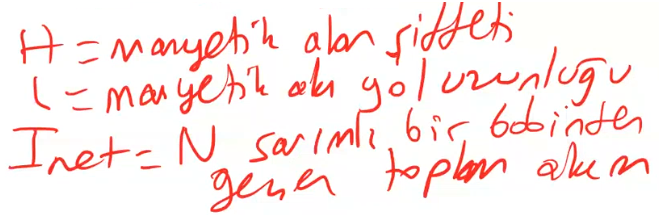 H = manyetik alan şiddeti
l = manyetik akı yol uzunluğu
Inet = N sarımlı bir bobinden
geçen toplam akım